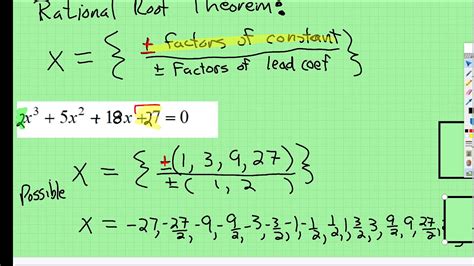 Rational Root Theorem:
x = { ± factors of constant / ± Factors of lead coef }
2x³ + 5x² + 18x + 27 = 0
x = { ±(1, 3, 9, 27) / ±(1, 2) }
Possible
x = -27, -27/2, -9, -9/2, -3, -3/2, -1, -1/2, 1/2, 1, 3/2, 3, 9/2, 9, 27/2,